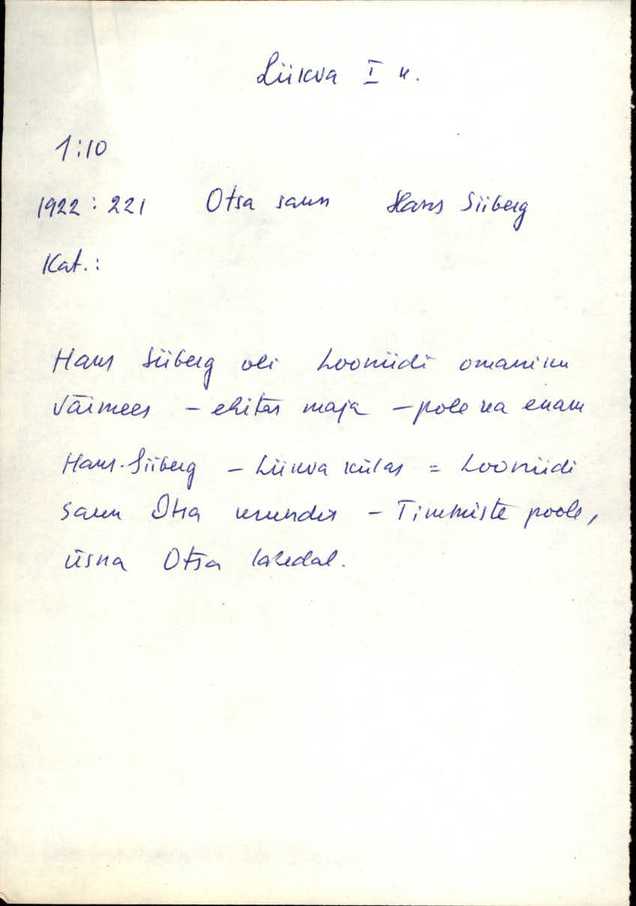 Liikva I k.
1:10
1922:221 Otsa saun Hans Siiberg
Kat.:
Hans Siiberg oli Looniidi omaniku
väimees – ehitas maja – pole ka enam
Hans Siiberg – Liikva külas = Looniidi
saun Otsa – Timmiste poole,
üsna Otsa lähedal.